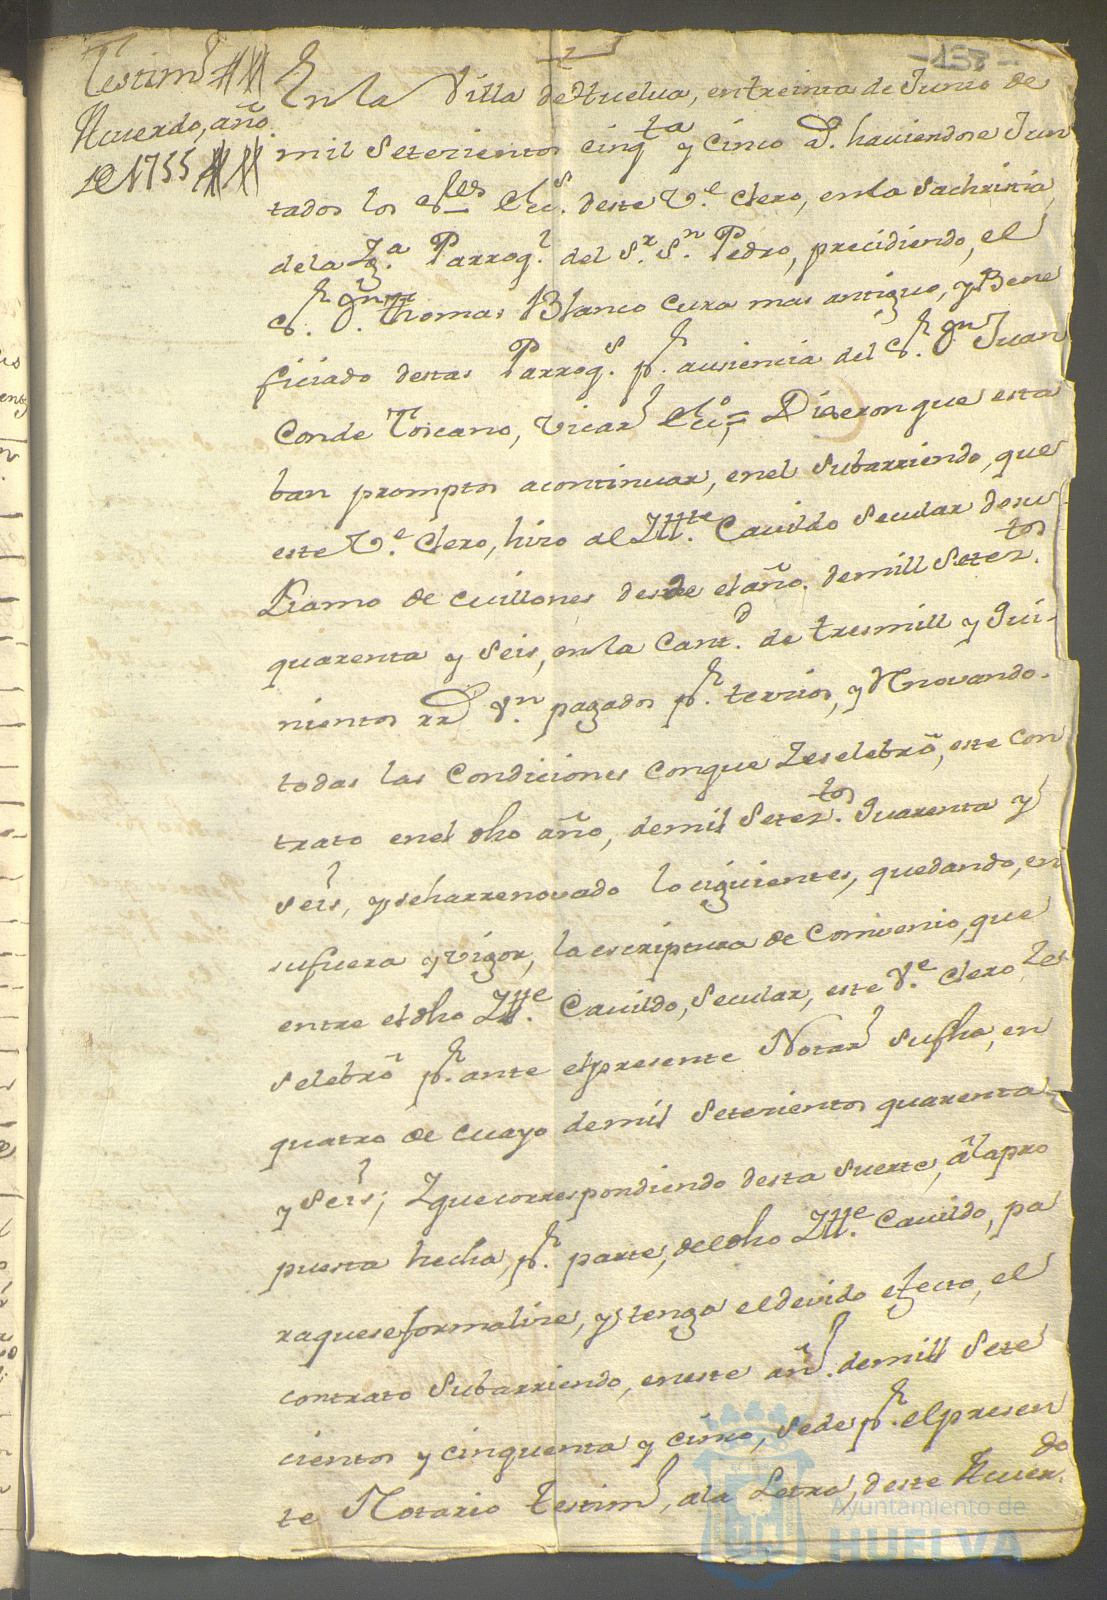 -138-
Testim.
Acuerdo, año
de 1755
En la Villa de Huelva, en treinta de Junio de
mil Setezientos cinq.ta y cinco a. haviendose Jun
tados los S.res Ecc.s deste V.e Clero, en la Sachristia,
de la Yg.a Parroq.l del S.r S.n Pedro, precidiendo, el
S.r Dn Thomas Blanco Cura mas antiguo, y Bene
ficiado destas Parroq.s p.r ausiencia del S.r Dn Juan
Conde Toscano, Vicar.o Ecc.o = Dixeron que esta
ban promptos a continuar, en el Subarriendo, que
este V.e Clero, hizo al Ill.te Cavildo Secular de su
Ramo de Millones desde el año. de mill Setez.tos
quarenta y Seis, en la Cant.d de tres mill y Qui-
nientos rr.s v.n pagados p.r tercios, y Rnovando.
todas las Condiciones con que Zeselebrô, este con
trato en el dho año, de mil Setez.tos Quarenta y
Seis, y seharrenovado lo ciguientes, quedando, en
su fuerza y vigor, la escriptura de Convenio, que
entre el dho Ylle. Cavildo, Secular, este V.e Clero,
Selebrô p.r ante el presente Notar.o su fha, en
quatro de Mayo de mil Setezientos quarenta
y Seis; Y que correspondiendo desta Suerte, â la pro
puesta hecha, p.r parte, del dho Ylle. Cavildo, pa
ra que se formalize, y tenga el devido efecto, el
contrato Subarriendo, en este añ.o de mill Sete
cientos y cinquenta y cinco, Se de p.r el presen
te Notario Testim.o, a la Letra, deste Acuer.do
Ayuntamiento de
HUELVA